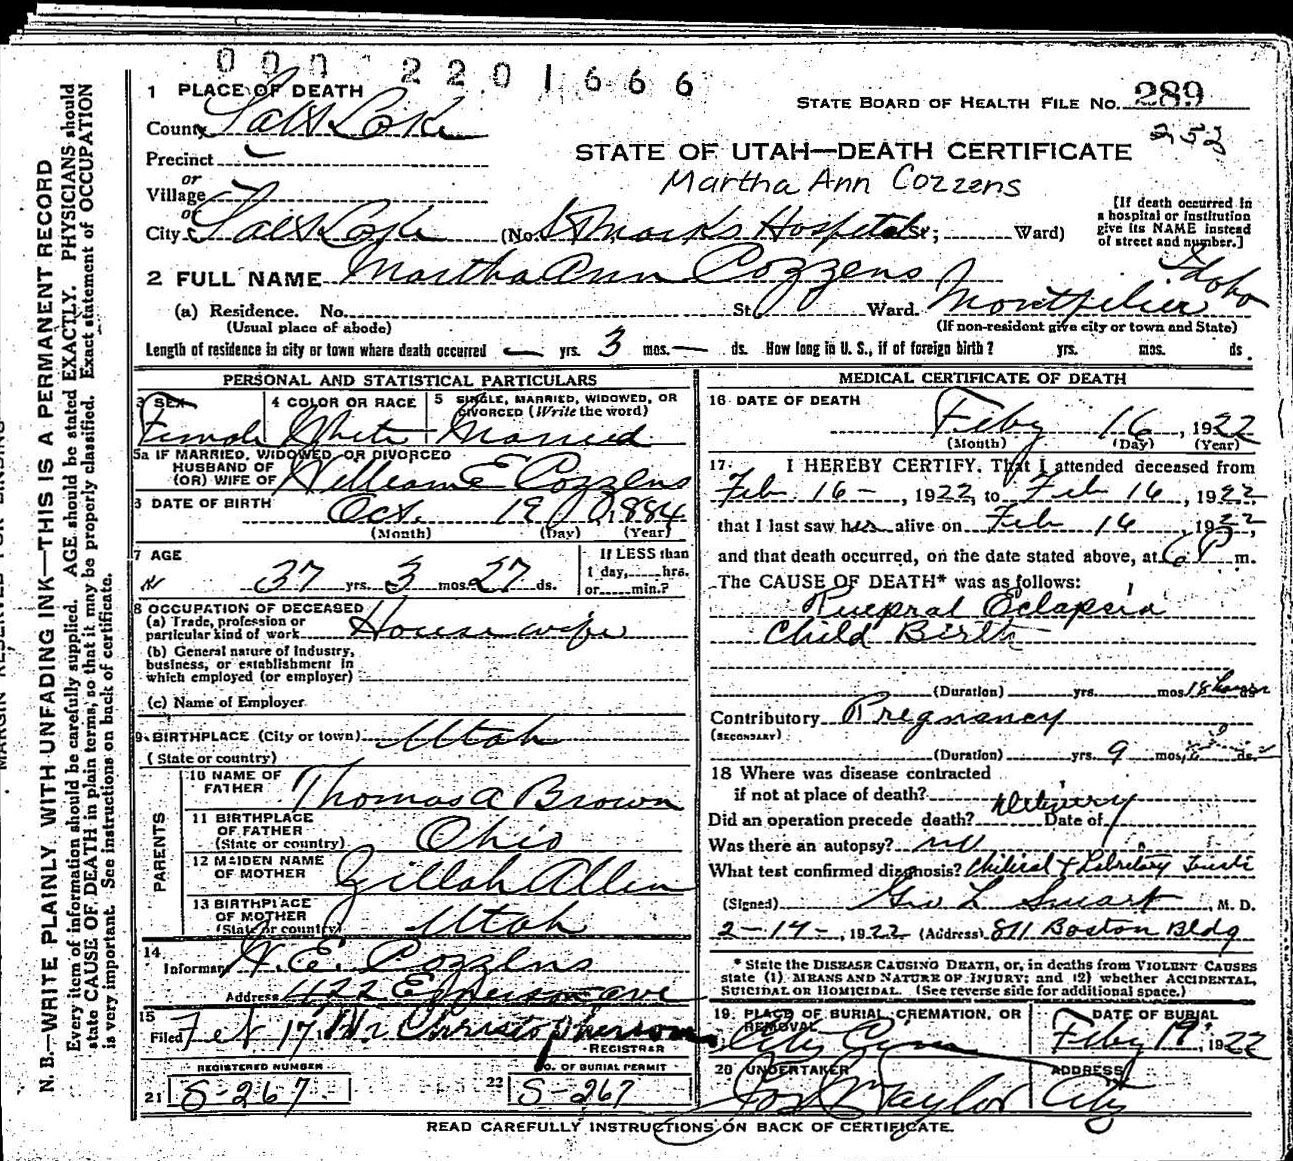 000 2201666
1 PLACE OF DEATH
STATE BOARD OF HEALTH FILE NO. 289
County Salt Lake
252
Precinct
STATE OF UTAH—DEATH CERTIFICATE
or
Village
Martha Ann Cozzens
or
City Salt Lake (No. St Marks Hospital St; Ward)
[If death occurred in
a hospital or institution
give its NAME instead
of street and number.]
2 FULL NAME Martha Ann Cozzens
Idaho
(a) Residence. No. St. Ward. Montpelier
(Usual place of abode) (If non-resident give city or town and State)
Length of residence in city or town where death occurred — yrs. 3 mos. — ds. How long in U. S., if of foreign birth? yrs. mos. ds.
PERSONAL AND STATISTICAL PARTICULARS
3 SEX 4 COLOR OR RACE 5 SINGLE, MARRIED, WIDOWED, OR
DIVORCED (Write the word)
Female White Married
5a IF MARRIED, WIDOWED, OR DIVORCED
HUSBAND OF
(OR) WIFE OF William E Cozzens
6 DATE OF BIRTH Oct. 19 1884
(Month) (Day) (Year)
7 AGE If LESS than
1 day,.....hrs.
37 yrs. 3 mos. 27 ds. or.....min.?
8 OCCUPATION OF DECEASED
(a) Trade, profession or
particular kind of work Housewife
(b) General nature of Industry,
business, or establishment in
which employed (or employer)
(c) Name of Employer
9 BIRTHPLACE (City or town) Utah
(State or country)
PARENTS
10 NAME OF
FATHER Thomas A Brown
11 BIRTHPLACE
OF FATHER
(State or country) Ohio
12 MAIDEN NAME
OF MOTHER Zillah Allen
13 BIRTHPLACE
OF MOTHER
(State or country) Utah
14
Informant W. E. Cozzens
Address 422 Emerson ave
15
Filed Feb 17 Christopherson
REGISTRAR
REGISTERED NUMBER NO. OF BURIAL PERMIT
21 S-267 22 S-267
MEDICAL CERTIFICATE OF DEATH
16 DATE OF DEATH
Feby 16, 1922
(Month) (Day) (Year)
17. I HEREBY CERTIFY, That I attended deceased from
Feb 16-, 1922, to Feb 16, 1922
that I last saw her alive on Feb 16, 1922,
and that death occurred, on the date stated above, at 6 P m.
The CAUSE OF DEATH* was as follows:
Puepral Eclapsia
Child Birth
(Duration) yrs. mos. 18 hours
Contributory Pregnancy
(SECONDARY)
(Duration) yrs. 9 mos. ds.
18 Where was disease contracted
if not at place of death?
Did an operation precede death? Delivery Date of
Was there an autopsy? no
What test confirmed diagnosis?
(Signed) Geo L Smart, M. D.
2-17-, 1922 (Address) 811 Boston Bldg
* State the DISEASE CAUSING DEATH, or, in deaths from VIOLENT CAUSES
state (1) MEANS AND NATURE OF INJURY; and (2) whether ACCIDENTAL,
SUICIDAL OR HOMICIDAL. (See reverse side for additional space.)
19. PLACE OF BURIAL, CREMATION, OR
REMOVAL
City Cem
DATE OF BURIAL
Feby 19, 1922
20 UNDERTAKER ADDRESS
Jos Wm Taylor City
READ CAREFULLY INSTRUCTIONS ON BACK OF CERTIFICATE.
N. B.—WRITE PLAINLY, WITH UNFADING INK—THIS IS A PERMANENT RECORD
Every item of information should be carefully supplied. AGE should be stated EXACTLY. PHYSICIANS should
state CAUSE OF DEATH in plain terms, so that it may be properly classified. Exact statement of OCCUPATION
is very important. See instructions on back of certificate.